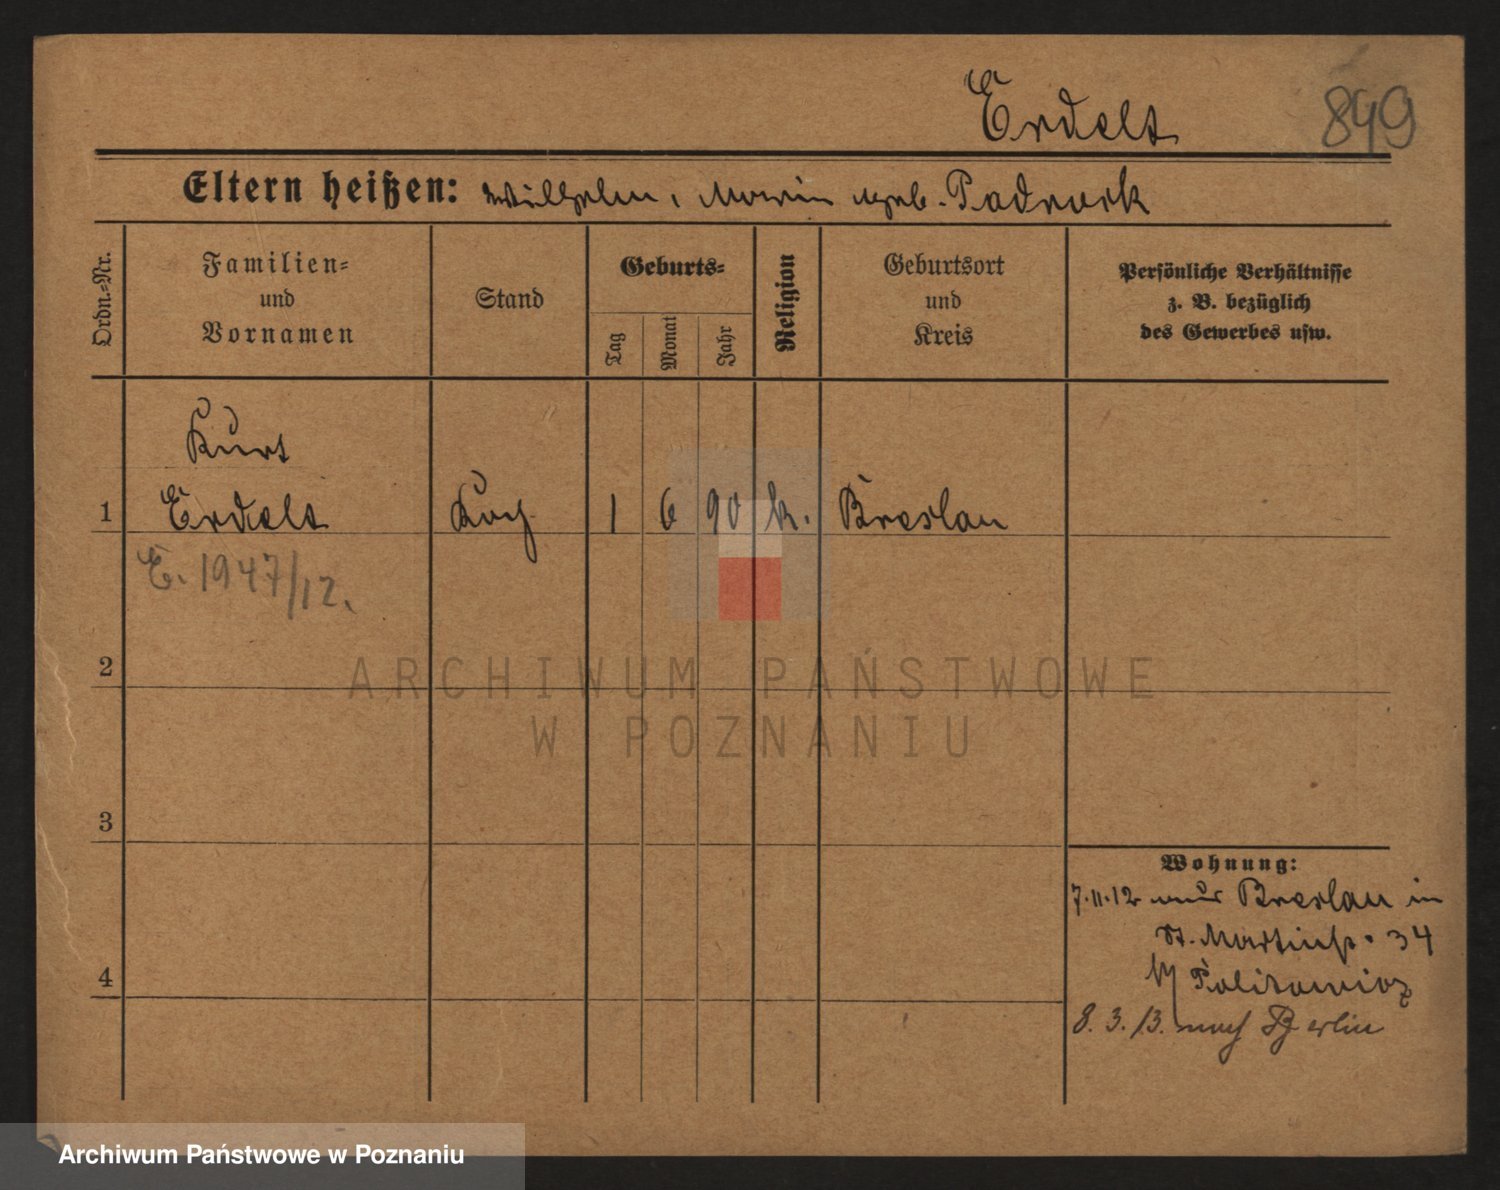 Erdelt 849
Eltern heißen: Wilhelm, Maria geb. Padrock
Ordn.-Nr.
Familien-
und
Vornamen
Stand
Geburts-
Tag
Monat
Jahr
Religion
Geburtsort
und
Kreis
Persönliche Verhältnisse
z. B. bezüglich
des Gewerbes usw.
Kurt
1 Erdelt Koch 1 6 90 k. Breslau
E. 1947/12.
2
ARCHIWUM PAŃSTWOWE
W POZNANIU
3
Wohnung:
7.11.12 aus Breslau in
St. Martinstr. 34
b/ Politowicz
4
8.3.13. nach Berlin
Archiwum Państwowe w Poznaniu